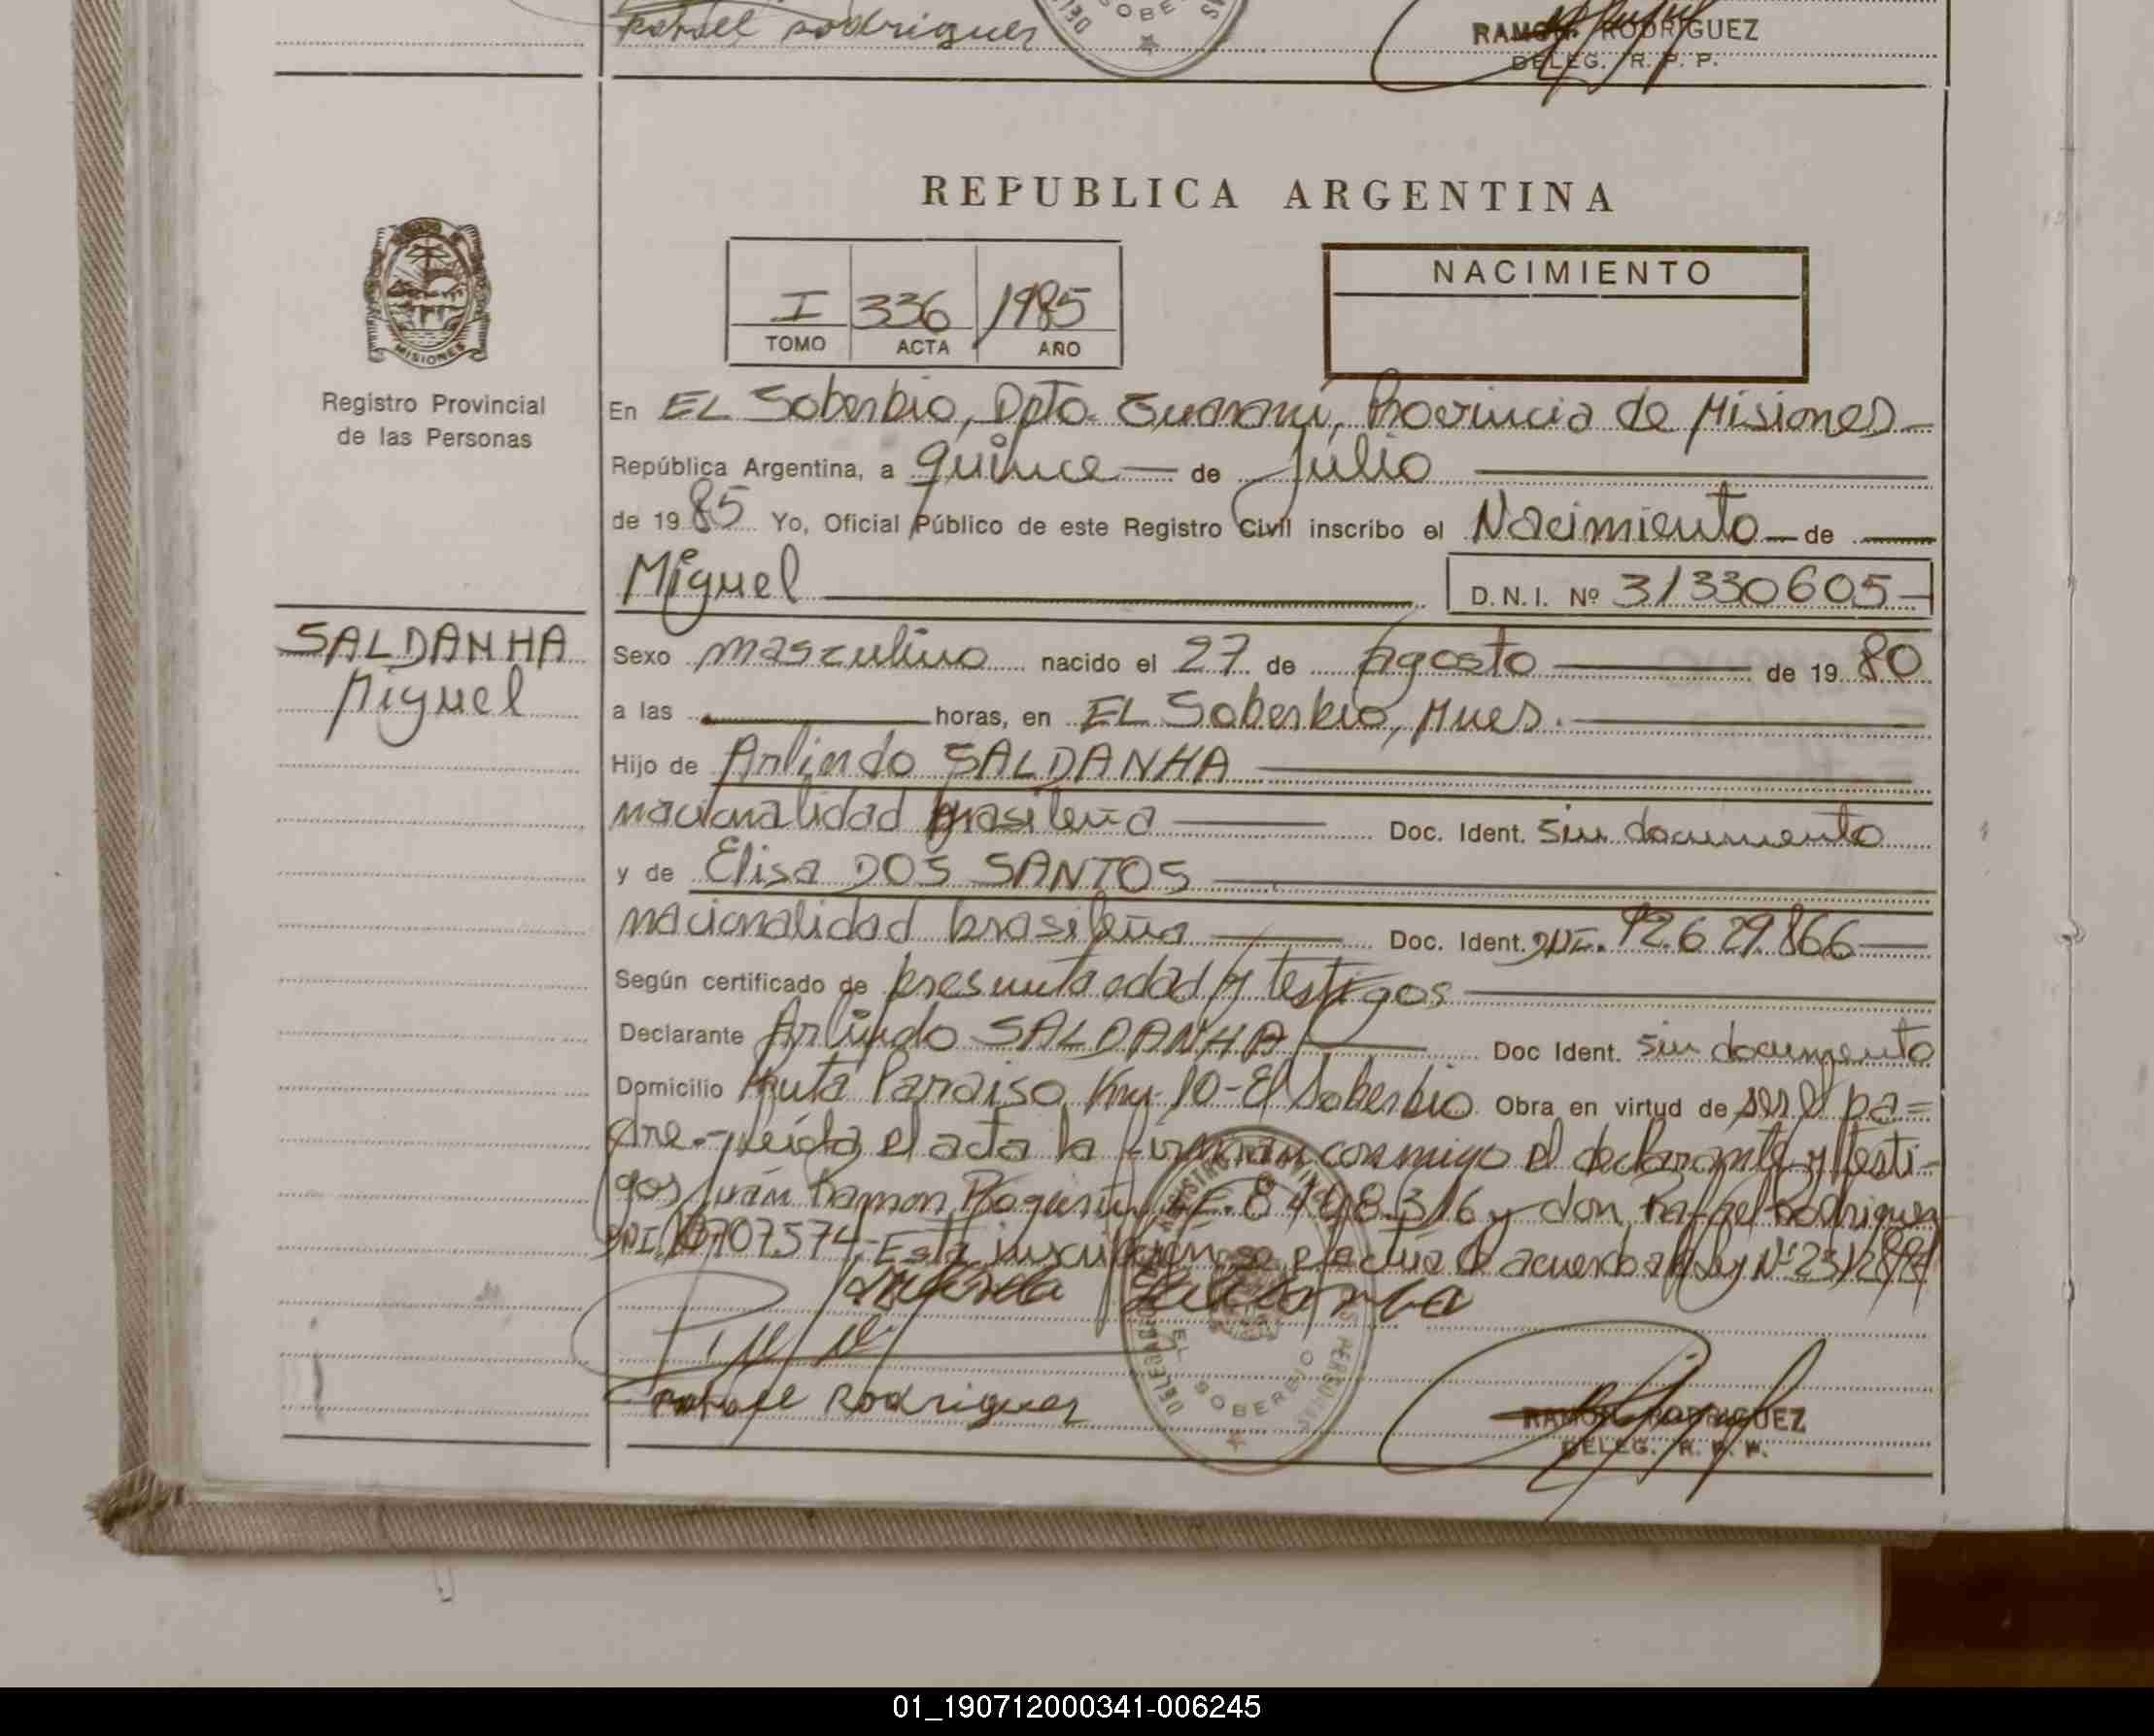 Rafael Rodriguez
SOBE
RAMON RODRIGUEZ
DELEG. R. P. P.
REPUBLICA ARGENTINA
MISIONES
Registro Provincial
de las Personas
I 336 1985
TOMO ACTA AÑO
NACIMIENTO
En EL Soberbio, Dpto. Guaraní, Provincia de Misiones
República Argentina, a quince de Julio
de 1985 Yo, Oficial Público de este Registro Civil inscribo el Nacimiento de
Miguel
D.N.I. Nº 31330605
SALDANHA
Miguel
Sexo masculino nacido el 27 de Agosto de 1980
a las horas, en EL Soberbio, Mnes.
Hijo de Arlindo SALDANHA
nacionalidad brasileña Doc. Ident. Sin documento
y de Elisa DOS SANTOS
nacionalidad brasileña Doc. Ident. DNI. 92.629.866
Según certificado de presunta edad y testigos
Declarante Arlindo SALDANHA Doc Ident. Sin documento
Domicilio Ruta Paraiso Km. 10 - El Soberbio Obra en virtud de ser el pa=
dre.- Leída el acta la firman conmigo el declarante y testi-
gos Juan Ramon y don Rafael Rodriguez
Esta inscripción se efectúa de acuerdo a la Ley Nº
EL SOBERBIO
Rafael Rodriguez
RAMON RODRIGUEZ
DELEG. R. P. P.
01_190712000341-006245